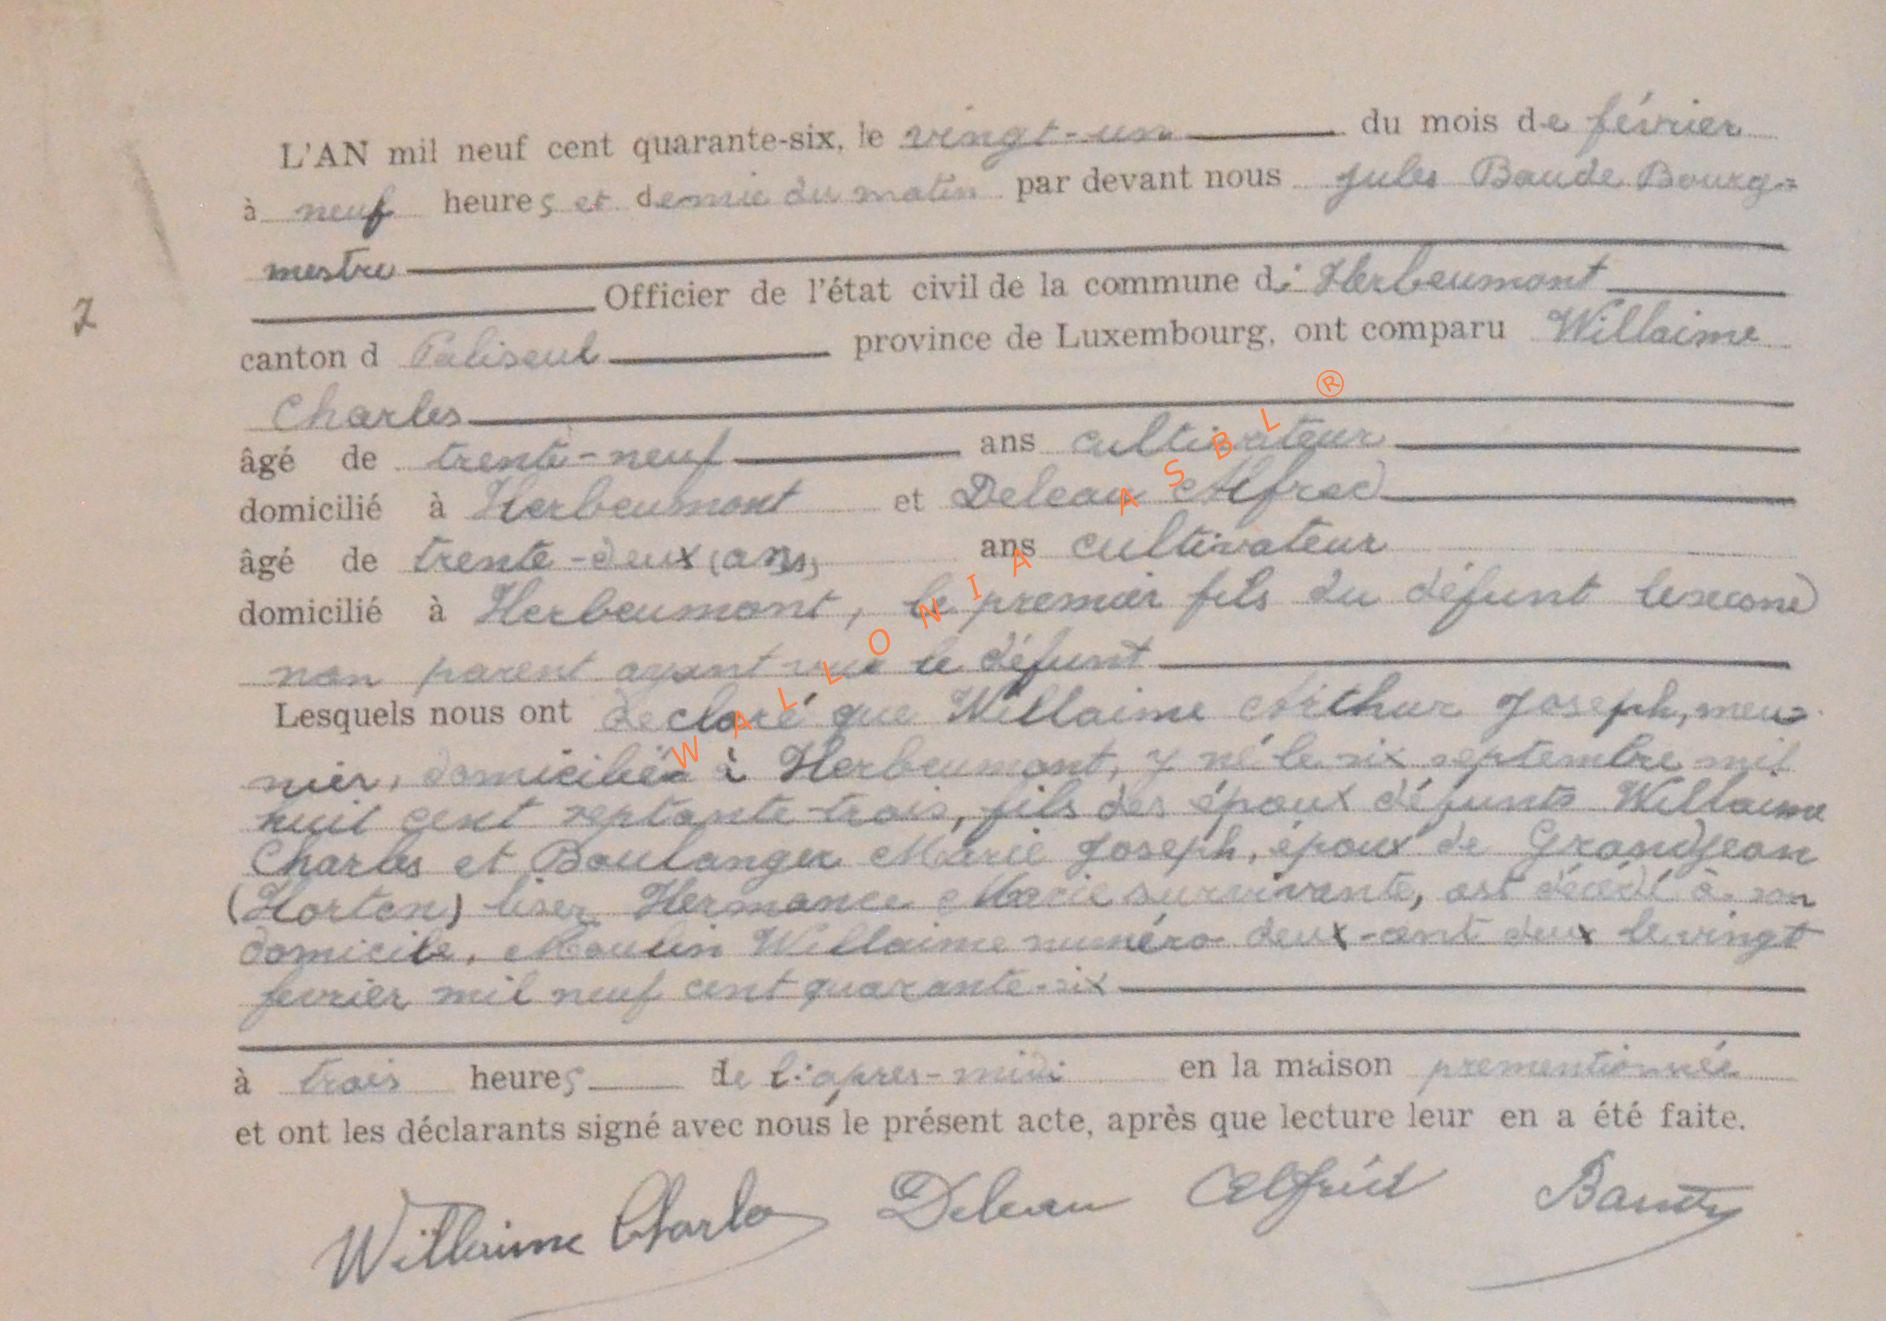 L'AN mil neuf cent quarante-six, le vingt-un du mois de février
à neuf heures et demie du matin par devant nous Jules Baude Bourg=
mestre
Officier de l'état civil de la commune d' Herbeumont
canton d Paliseul province de Luxembourg, ont comparu Willaime
Charles
âgé de trente-neuf ans cultivateur
domicilié à Herbeumont et Deleau Alfred
âgé de trente-deux (ans) ans cultivateur
domicilié à Herbeumont, le premier fils du défunt le second
non parent ayant vu le défunt
Lesquels nous ont declaré que Willaime Arthur Joseph, meu=
nier, domicilié à Herbeumont, y né le six septembre mil
huit cent septante-trois, fils des époux défunts Willaime
Charles et Boulanger Marie Joseph, époux de Grandjean
(Horten) lisez Hermance Marie survivante, est décédé à son
domicile, Moulin Willaime numéro deux-cent deux le vingt
fevrier mil neuf cent quarante-six
à trois heures de l'apres-midi en la maison prementionnée
et ont les déclarants signé avec nous le présent acte, après que lecture leur en a été faite.
Willaime Charles Deleau Alfred Baude
2
WALLONIA ASBL ®